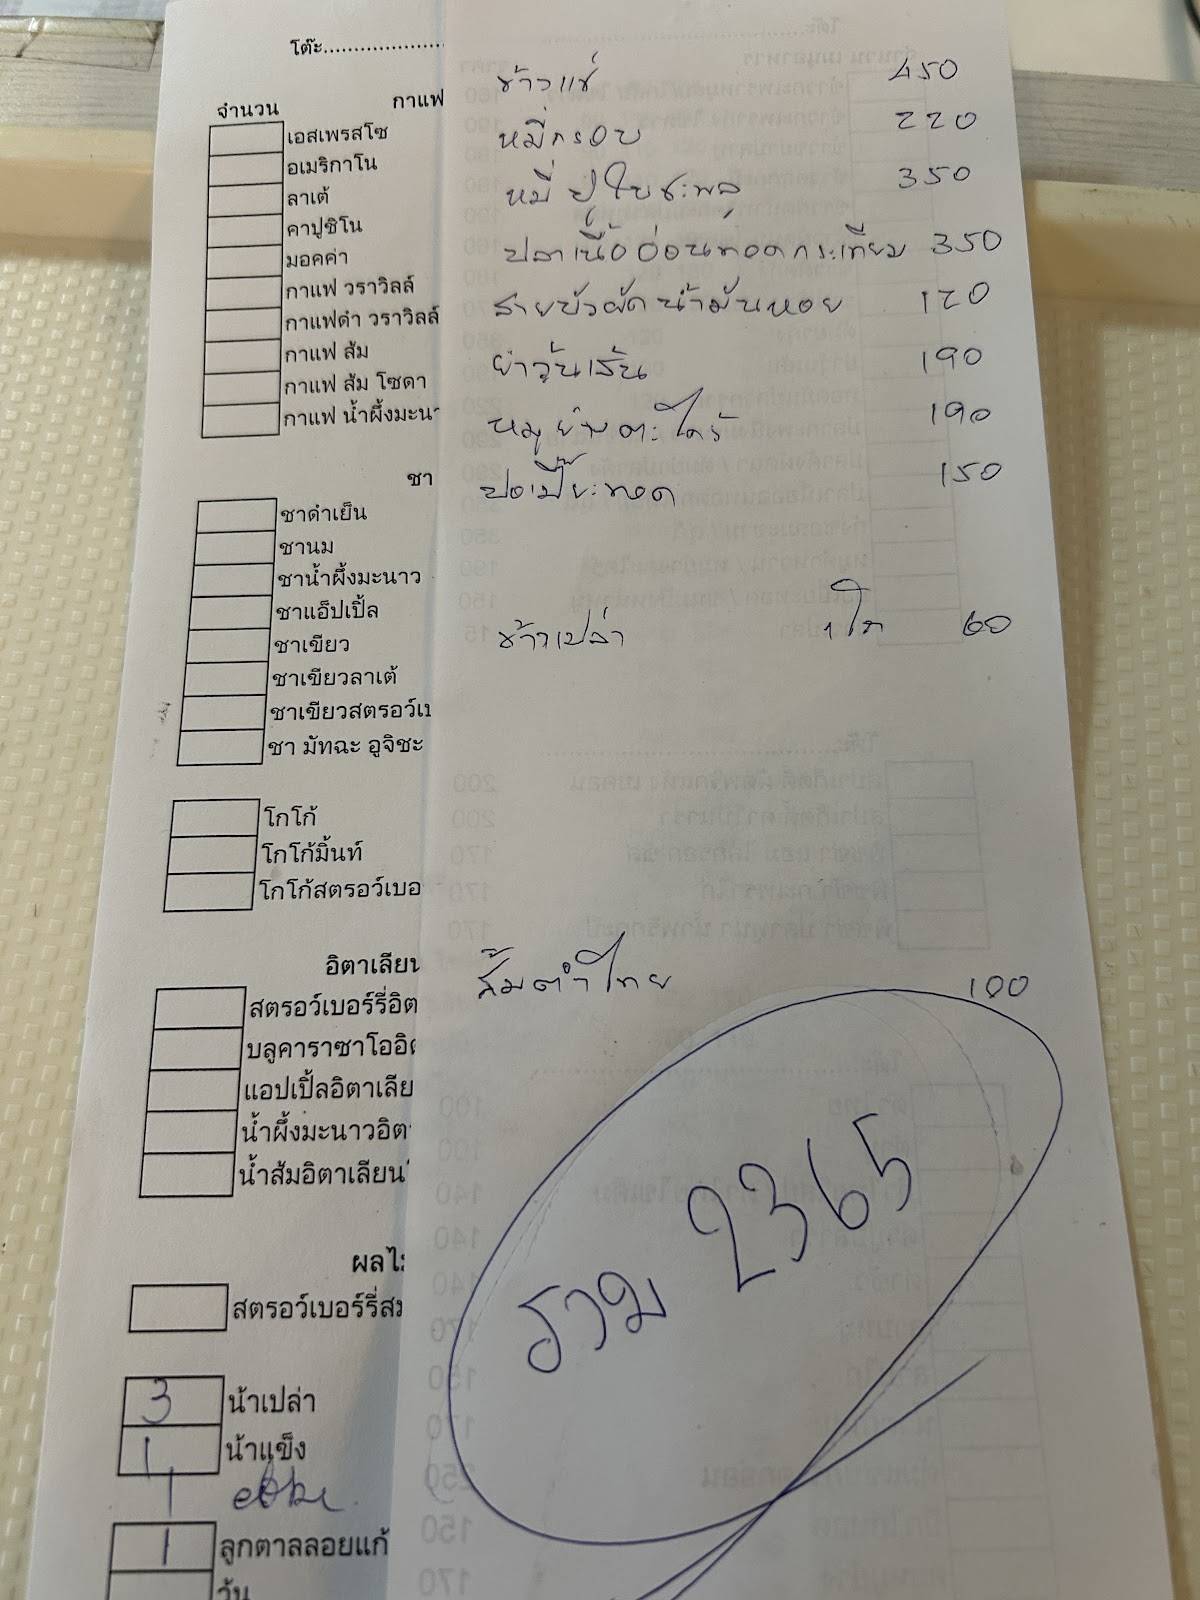 โต๊ะ......................
จำนวน กาแฟ
เอสเพรสโซ
อเมริกาโน
ลาเต้
คาปูชิโน
มอคค่า
กาแฟ วราวิลล์
กาแฟดำ วราวิลล์
กาแฟ ส้ม
กาแฟ ส้ม โซดา
กาแฟ น้ำผึ้งมะนา
ชา
ชาดำเย็น
ชานม
ชาน้ำผึ้งมะนาว
ชาแอ็ปเปิ้ล
ชาเขียว
ชาเขียวลาเต้
ชาเขียวสตรอว์เบ
ชา มัทฉะ อูจิชะ
โกโก้
โกโก้มิ้นท์
โกโก้สตรอว์เบอ
อิตาเลียน
สตรอว์เบอร์รี่อิต
บลูคาราซาโออิ
แอปเปิ้ลอิตาเลีย
น้ำผึ้งมะนาวอิต
น้ำส้มอิตาเลียน
ผลไ
สตรอว์เบอร์รี่ส
3 น้ำเปล่า
1 น้ำแข็ง
1
1 ลูกตาลลอยแก้
วุ้น
ข้าวแช่ 450
หมี่กรอบ 220
หมี่ปูใบชะพลู 350
ปลาเนื้ออ่อนทอดกระเทียม 350
สายบัวผัดน้ำมันหอย 120
ยำวุ้นเส้น 190
หมูย่างตะไคร้ 190
ปอเปี๊ยะทอด 150
ข้าวเปล่า 1 โถ 60
ส้มตำไทย 100
รวม 2365